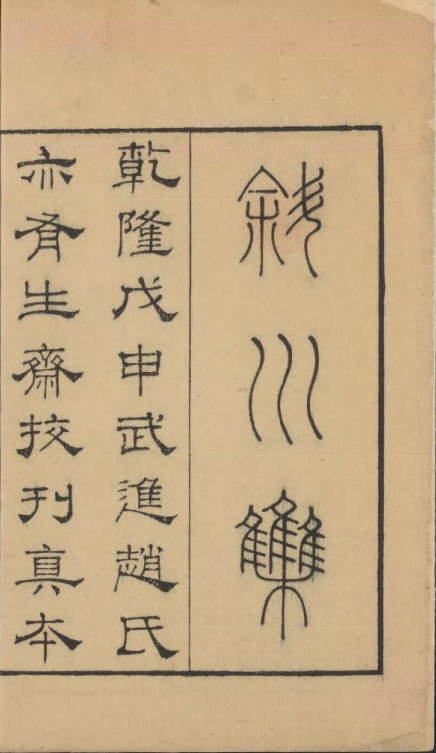 斜川集
乾隆戊申武進趙氏
亦有生齋挍刊真本